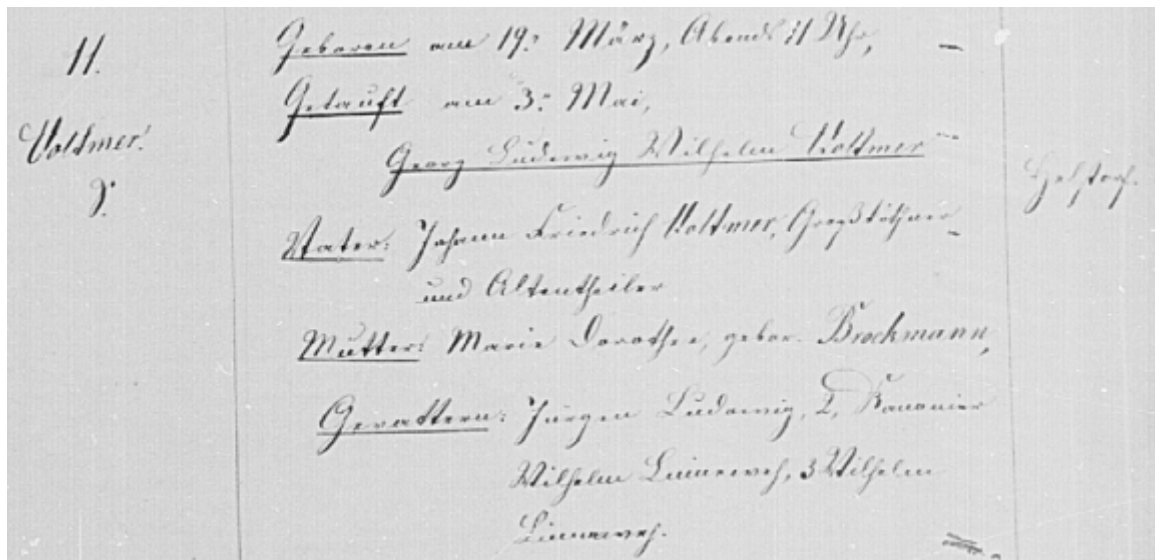 11.
Voltmer.
Geboren am 19. März, Abends 11 Uhr,
Getauft am 3. Mai,
Georg Ludewig Wilhelm Voltmer
Helstorf.
Vater: Johann Friedrich Voltmer, Großköthner
und Altentheiler
Mutter: Marie Dorothee, gebor. Brockmann,
Gevattern: Jürgen Ludewig, 2, Kanonier
Wilhelm Linneweh, 3 Wilhelm
Linneweh.